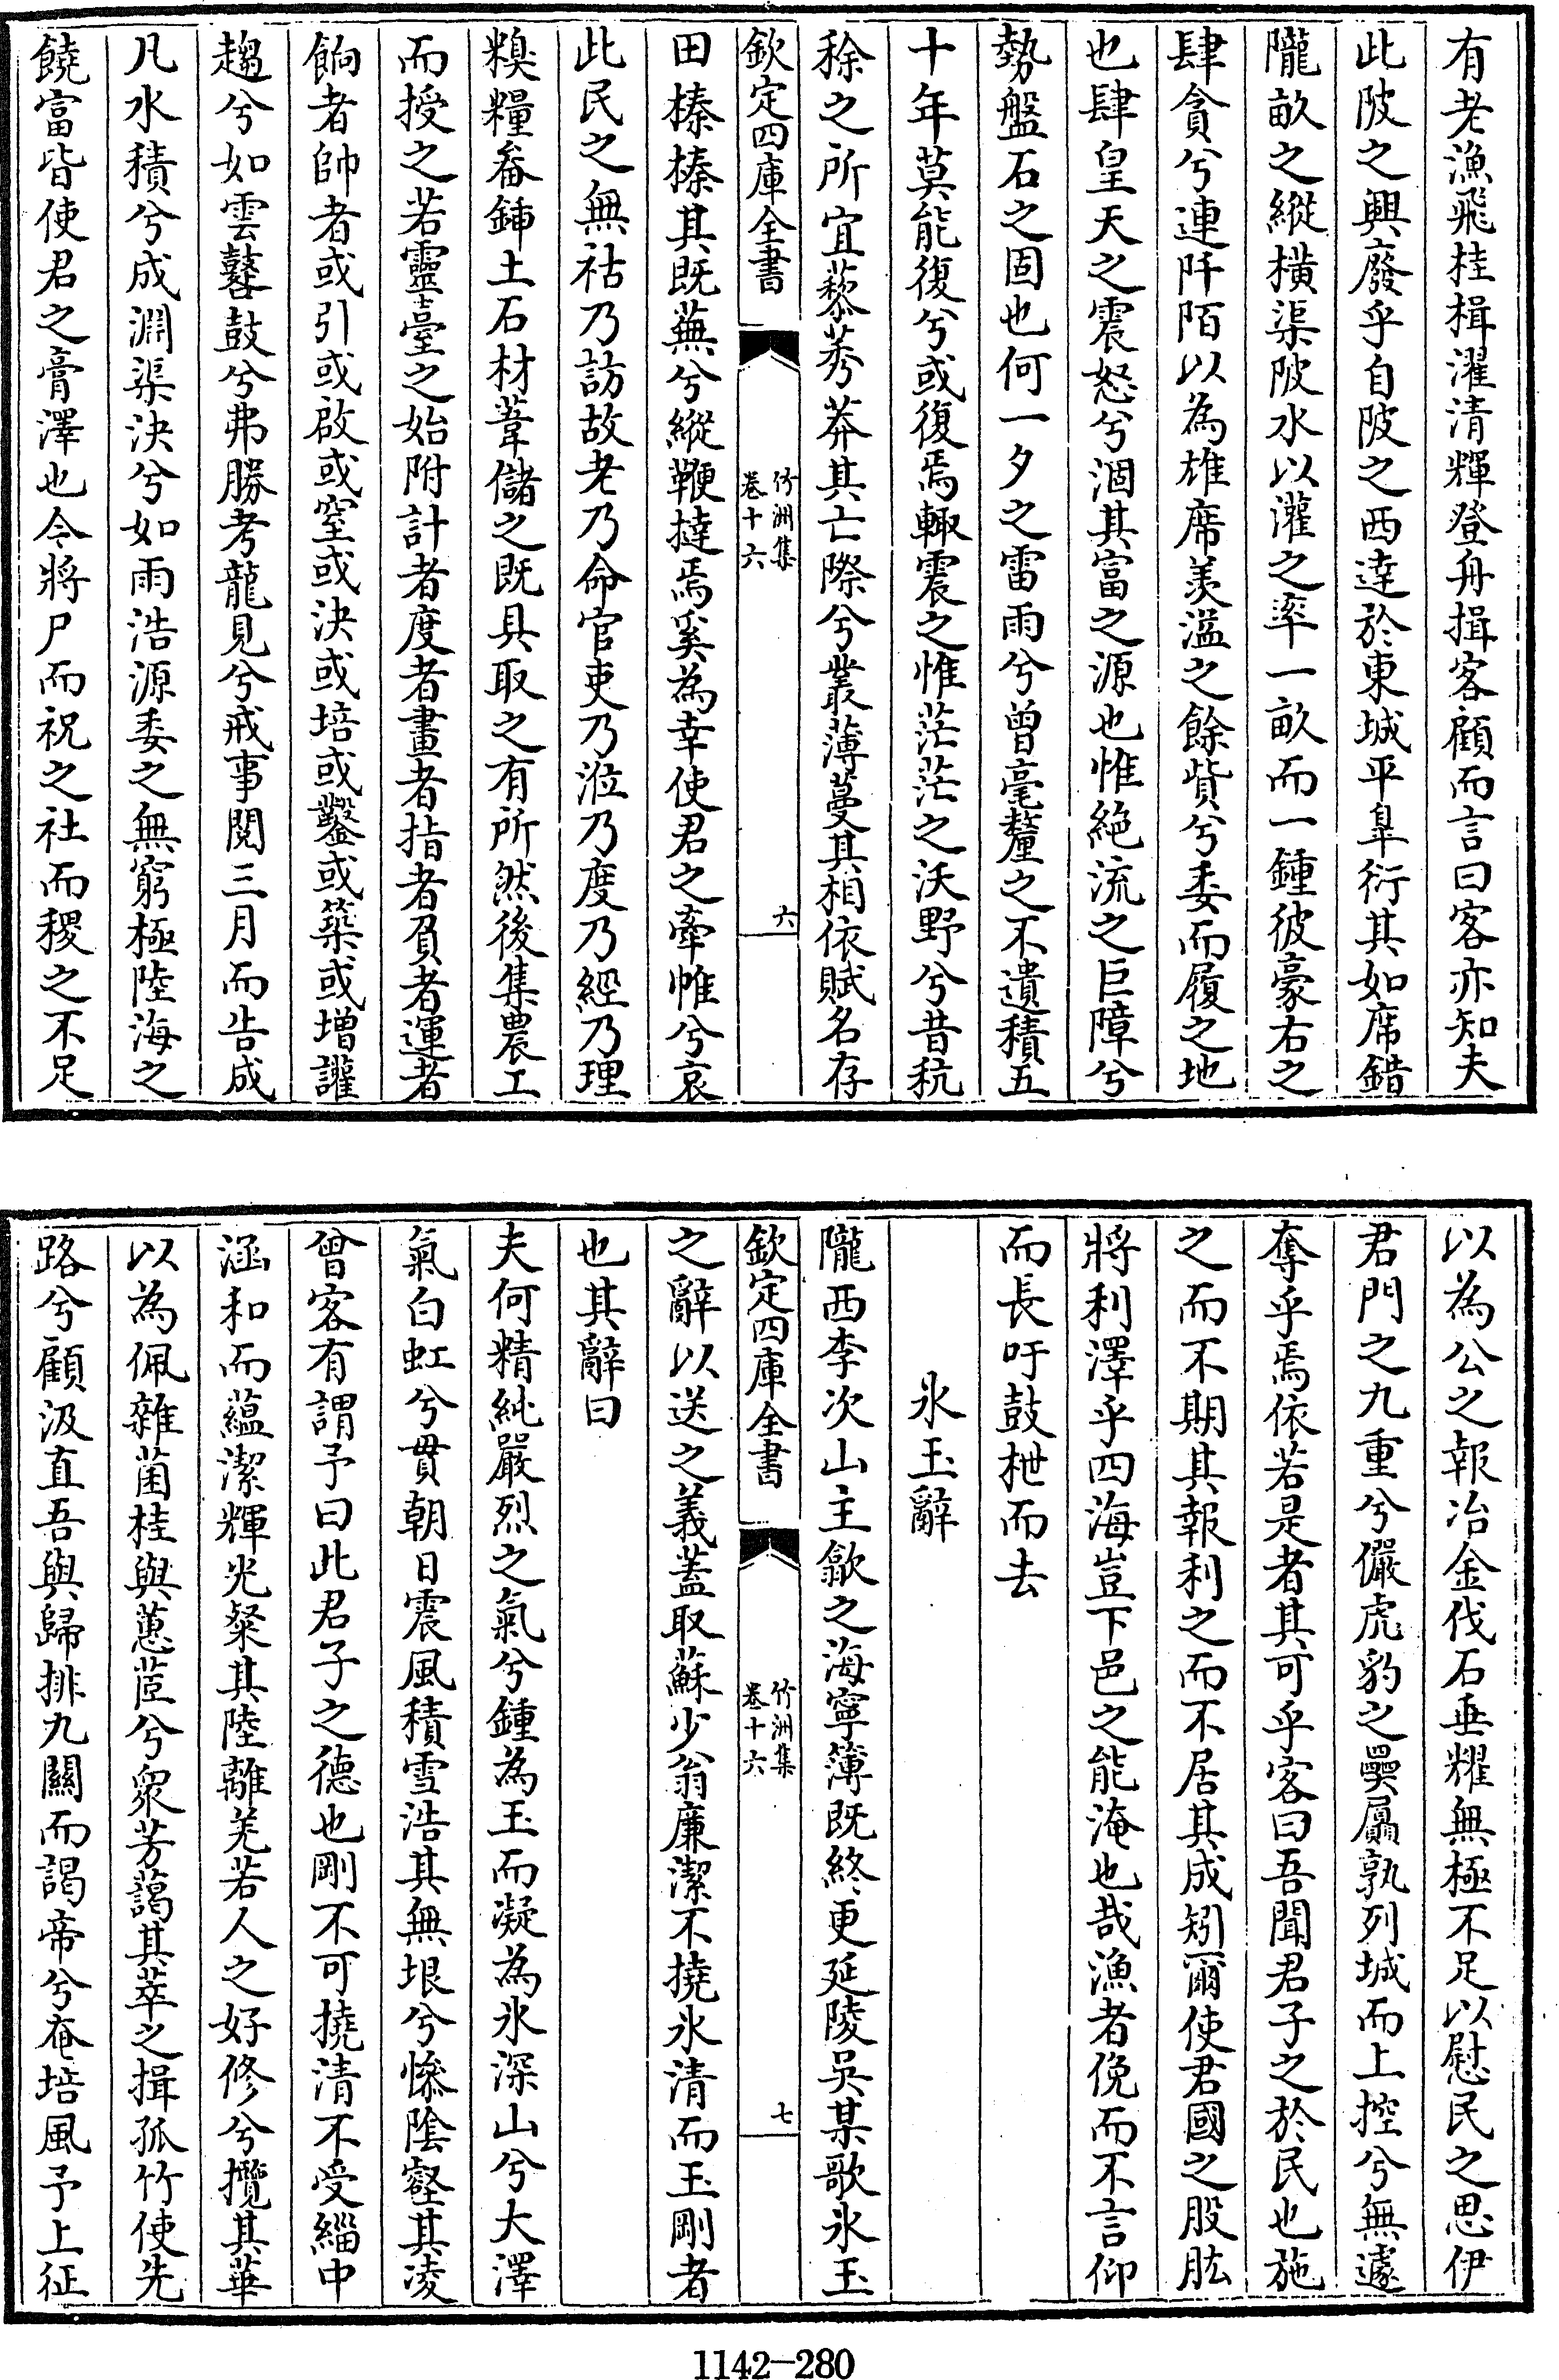 有老漁飛桂楫濯清輝登舟揖客顧而言曰客亦知夫
此陂之興廢乎自陂之西達於東城平臯衍其如席錯
隴畝之縱橫渠陂水以灌之率一畝而一鍾彼豪右之
肆貪兮連阡陌以為雄席羨溢之餘貲兮委而履之地
也肆皇天之震怒兮涸其富之源也惟絶流之巨障兮
勢盤石之固也何一夕之雷雨兮曾毫釐之不遺積五
十年莫能復兮或復焉輙震之惟茫茫之沃野兮昔秔
稌之所宜藜莠莽其亡際兮叢薄蔓其相依賦名存
欽定四庫全書
竹洲集
卷十六
六
田榛榛其既蕪兮縱鞭撻焉奚為幸使君之牽帷兮哀
此民之無祜乃訪故老乃命官吏乃涖乃度乃經乃理
糗糧畚鍤土石材葦儲之既具取之有所然後集農工
而授之若靈臺之始附計者度者畫者指者負者運者
餉者帥者或引或啟或窒或決或培或鑿或築或增讙
趨兮如雲鼛鼓兮弗勝考龍見兮戒事閱三月而告成
凡水積兮成淵渠決兮如雨浩源委之無窮極陸海之
饒富皆使君之膏澤也今將尸而祝之社而稷之不足
以為公之報冶金伐石垂耀無極不足以慰民之思伊
君門之九重兮儼虎豹之㚅屭孰列城而上控兮無遽
奪乎焉依若是者其可乎客曰吾聞君子之於民也施
之而不期其報利之而不居其成矧爾使君國之股肱
將利澤乎四海豈下邑之能淹也哉漁者俛而不言仰
而長吁鼓枻而去
氷玉辭
隴西李次山主歙之海寧簿既終更延陵吳某歌氷玉
欽定四庫全書
竹洲集
卷十六
七
之辭以送之義蓋取蘇少翁廉潔不撓氷清而玉剛者
也其辭曰
夫何精純嚴烈之氣兮鍾為玉而凝為氷深山兮大澤
氣白虹兮貫朝日震風積雪浩其無垠兮慘陰壑其凌
曾客有謂予曰此君子之德也剛不可撓清不受緇中
涵和而蘊潔輝光粲其陸離羌若人之好修兮攬其華
以為佩雜菌桂與蕙茝兮衆芳藹其萃之揖孤竹使先
路兮顧汲直吾與歸排九關而謁帝兮奄培風予上征
1142-280